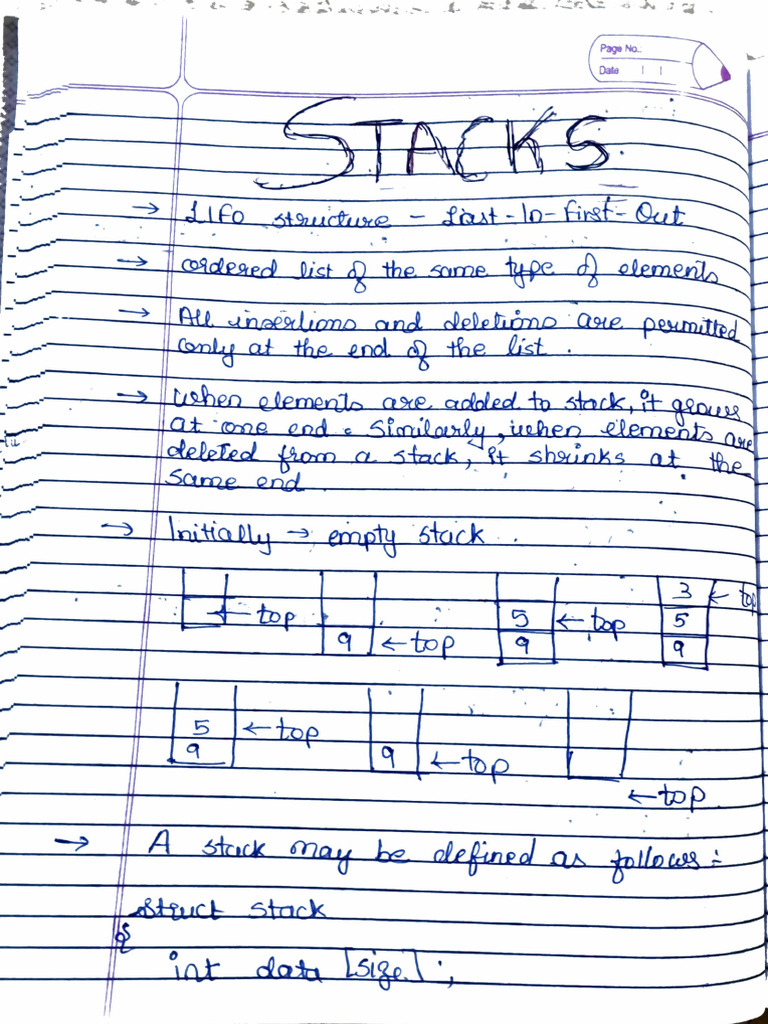 Page No.:
Date
STACKS
→ LIFO structure - Last-In-First-Out
→ ordered list of the same type of elements
→ All insertions and deletions are permitted
only at the end of the list.
→ when elements are added to stack, it grows
at one end. Similarly, when elements are
deleted from a stack, it shrinks at the
same end.
→ Initially → empty stack.
3 ← top
← top 5 ← top 5
9 ← top 9 9
5 ← top
9 9 ← top
← top
→ A stack may be defined as follows:-
struct stack
{
int data [size];